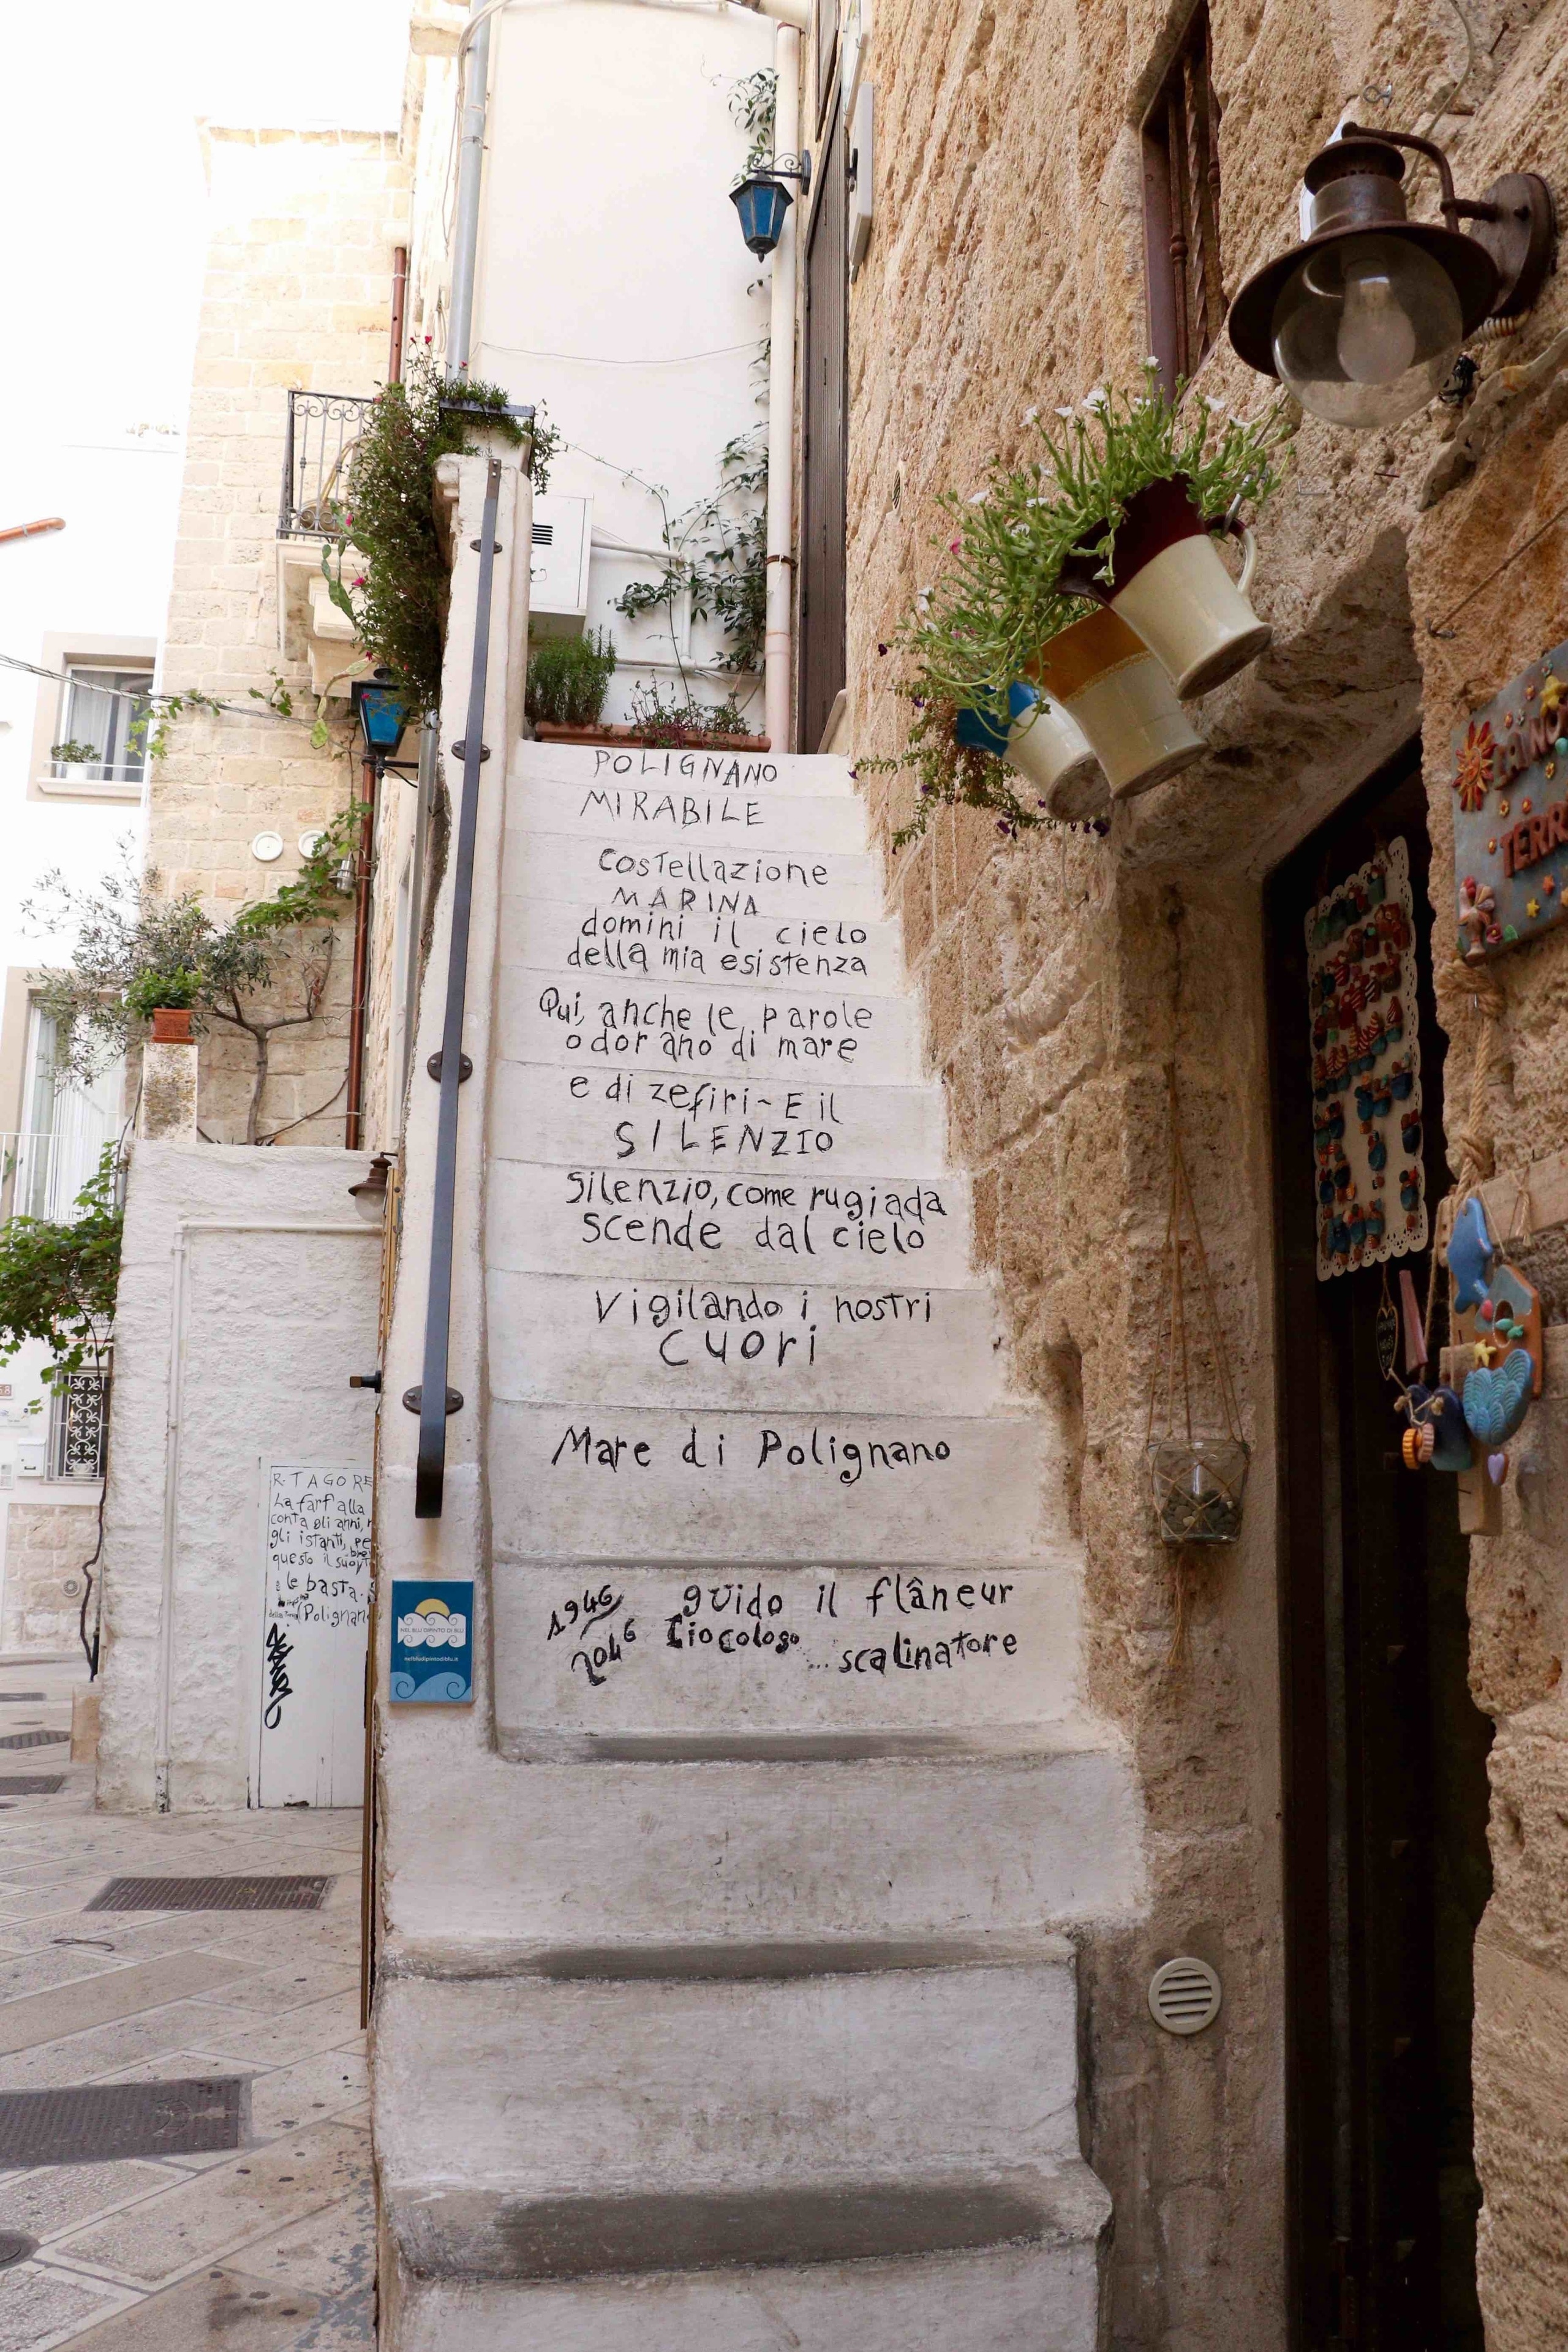 POLIGNANO
MIRABILE
costellazione
MARINA
domini il cielo
della mia esistenza
Qui, anche le parole
odorano di mare
e di zefiri~ E il
SILENZIO
Silenzio, come rugiada
scende dal cielo
Vigilando i nostri
cuori
Mare di Polignano
1946 guido il flâneur
2046
...scalinatore
R. TAGORE
La farfalla
conta gli anni,
gli istanti,
questo il suo
le basta.
(Polignan
NEL BLU DIPINTO DI BLU
nelbludipintodiblu.it